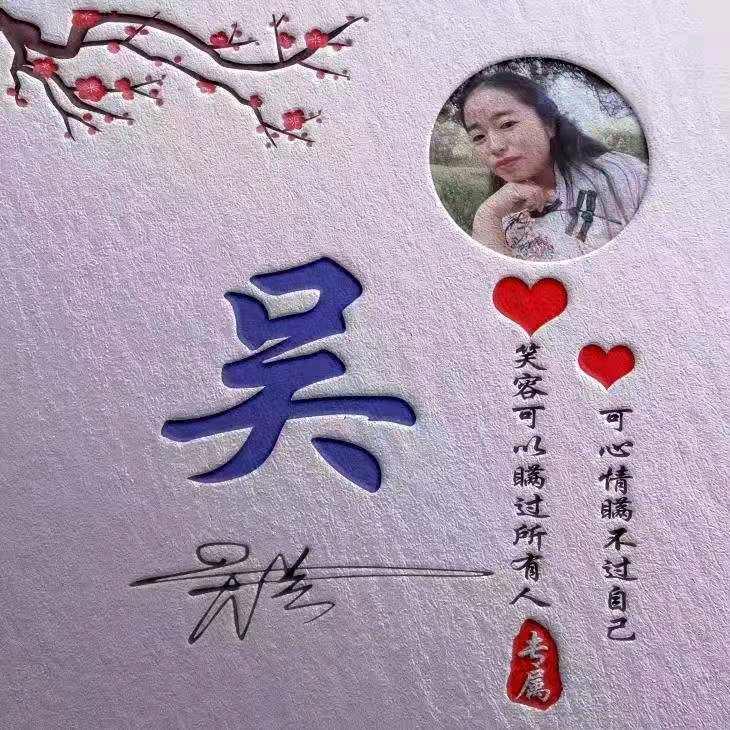 吴
笑容可以瞒过所有人
可心情瞒不过自己
专属